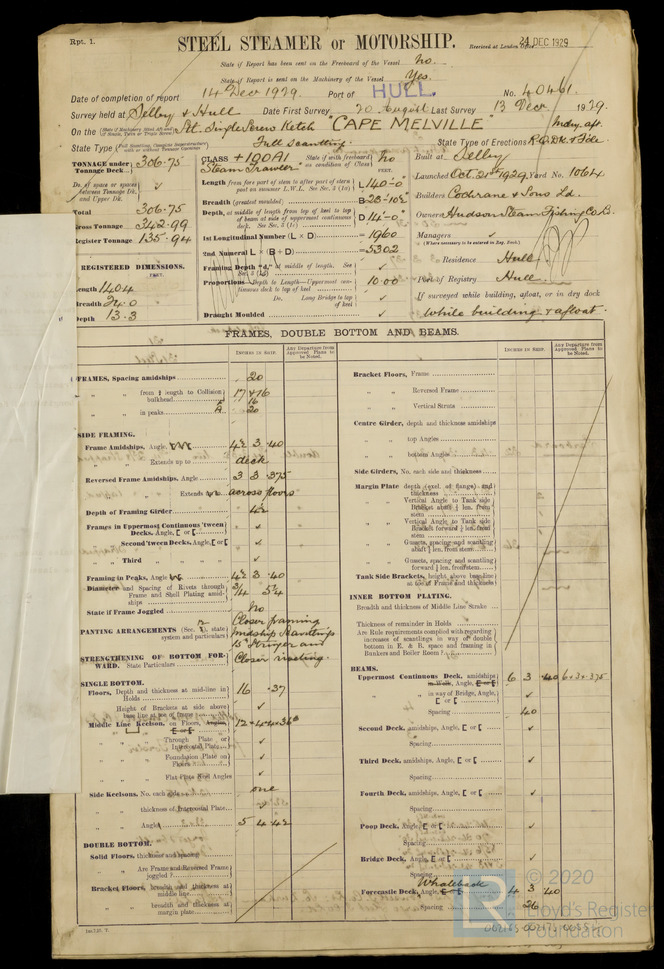 Rpt. 1.
STEEL STEAMER or MOTORSHIP.
Received at London Office 24 DEC 1929
State if Report has been sent on the Freeboard of the Vessel No.
State if Report is sent on the Machinery of the Vessel Yes.
Date of completion of report 14 Decr 1929. Port of HULL. No. 40461
Survey held at Selby & Hull Date First Survey 20 August Last Survey 13 Decr 1929.
On the Stl. Single Screw Ketch "CAPE MELVILLE" Mchy. aft.
State Type Full Scantling State Type of Erections R.Q.Dk & F'cle
TONNAGE under Tonnage Deck 306.75
Do. of space or spaces between Tonnage Dk. and Upper Dk. ✓
Total 306.75
Gross Tonnage 342.99
Register Tonnage 135.94
REGISTERED DIMENSIONS.
FEET.
Length 140.4
Breadth 24.0
Depth 13.3
CLASS +100A1 State if with freeboard as condition of Class No
Steam Trawler
FEET.
Length from fore part of stem to after part of stern post on summer L.W.L. See Sec. 3 (1c) L 140-0
Breadth (greatest moulded) B 23-10½
Depth, at middle of length from top of keel to top of beam at side of uppermost continuous deck. See Sec. 3 (1c) D 14-0
1st Longitudinal Number (L × D) = 1960
2nd Numeral L × (B + D) = 5302
Framing Depth "d," at middle of length. See Sec. 3 (1d) ✓
Proportions—Depth to Length—Uppermost continuous deck to top of keel 10.00
Do. Long Bridge to top of keel ✓
Draught Moulded ✓
Built at Selby
Launched Oct. 21st 1929 Yard No. 1064
Builders Cochrane & Sons Ld.
Owners Hudson Steam Fishing Co. Ld.
Managers ✓
(Where necessary to be entered in Reg. Book.)
Residence Hull
Port of Registry Hull.
If surveyed while building, afloat, or in dry dock
While building & afloat.
FRAMES, DOUBLE BOTTOM AND BEAMS.
INCHES IN SHIP.
Any Departure from Approved Plans to be Noted.
INCHES IN SHIP.
Any Departure from Approved Plans to be Noted.
FRAMES, Spacing amidships 20
" " from ⅗ length to Collision bulkhead 17 & 16
" " in peaks F. 16 A. 20
SIDE FRAMING.
Frame Amidships, Angle 4½ 3 .40
" " Extends up to deck
Reversed Frame Amidships, Angle 3 3 .375
" " " Extends across floors
Depth of Framing Girder 4½
Frames in Uppermost Continuous 'tween Decks, Angle, [ or [ ✓
" Second 'tween Decks, Angle, [ or [ ✓
" Third " " " ✓
Framing in Peaks, Angle 4½ 3 .40
Diameter and Spacing of Rivets through Frame and Shell Plating amidships ¾ 5¼
State if Frame Joggled No
PANTING ARRANGEMENTS (Sec. 7), state system and particulars Closer framing
STRENGTHENING OF BOTTOM FORWARD. State Particulars Closer riveting.
SINGLE BOTTOM.
Floors, Depth and thickness at mid-line in Holds 16 .37
" Height of Brackets at side above base line at toe of frame ✓
Middle Line Keelson, on Floors, Angles, [ or [
" " Through Plate or Intercostal Plate ✓
" " Foundation Plate on Floors ✓
" " Flat Plate Keel Angles ✓
Side Keelsons, No. each side one
" " thickness of Intercostal Plate ✓
" " Angles 5 4 .42
DOUBLE BOTTOM.
Solid Floors, thickness and spacing
" " Are Frame and Reversed Frame joggled?
Bracket Floors, breadth and thickness at middle line
" " breadth and thickness at margin plate
Bracket Floors, Frame
" " Reversed Frame
" " Vertical Struts
Centre Girder, depth and thickness amidships
" " top Angles
" " bottom Angles
Side Girders, No. each side and thickness
Margin Plate depth (excl. of flange) and thickness
" " Vertical Angle to Tank side Bracket abaft ⅕ len. from stem
" " Vertical Angle to Tank side Bracket forward ⅕ len. from stem
" " Gussets, spacing and scantling abaft ⅕ len. from stem
" " Gussets, spacing and scantling forward ⅕ len. from stem
Tank Side Brackets, height above base line at toe of Frame and thickness
INNER BOTTOM PLATING.
Breadth and thickness of Middle Line Strake
Thickness of remainder in Holds
Are Rule requirements complied with regarding increases of scantlings in way of double bottom in E. & B. space and framing in Bunkers and Boiler Room?
BEAMS.
Uppermost Continuous Deck, amidships in Wells, Angle, [ or [ 6 3 .40 6 × 3 × .375
" " in way of Bridge, Angle, [ or [ ✓
Spacing 40
Second Deck, amidships, Angle, [ or [ ✓
Spacing
Third Deck, amidships, Angle, [ or [ ✓
Spacing
Fourth Deck, amidships, Angle, [ or [ ✓
Spacing
Poop Deck, Angle, [ or [ ✓
Spacing
Bridge Deck, Angle, [ or [ ✓
Spacing
Whaleback
Forecastle Deck, Angle, [ or [ 4 3 .40
Spacing 36
© 2020
LR
Lloyd's Register
Foundation